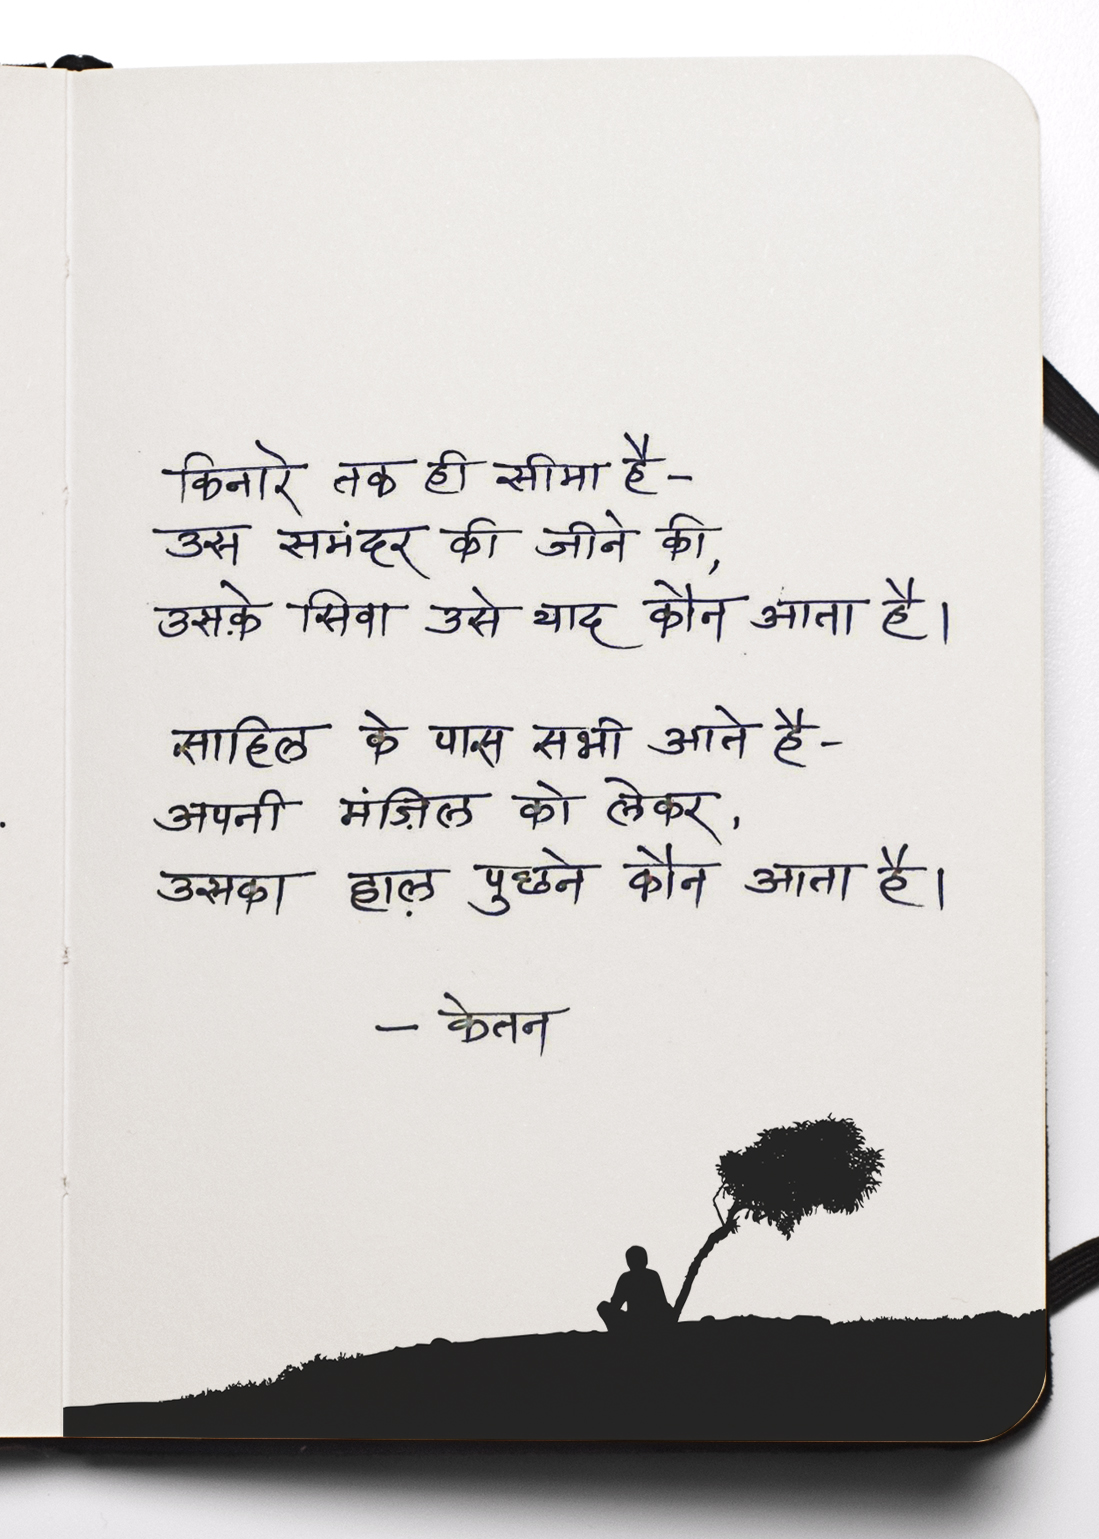 किनारे तक ही सीमा है-
उस समंदर की जीने की,
उसके़ सिवा उसे याद कौन आता है।
साहिल के पास सभी आते है-
अपनी मंज़िल को लेकर,
उसका हाल़ पुछने कौन आता है।
- केतन